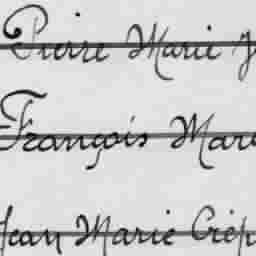 Pierre Marie
François Mari
Jean Marie Crép